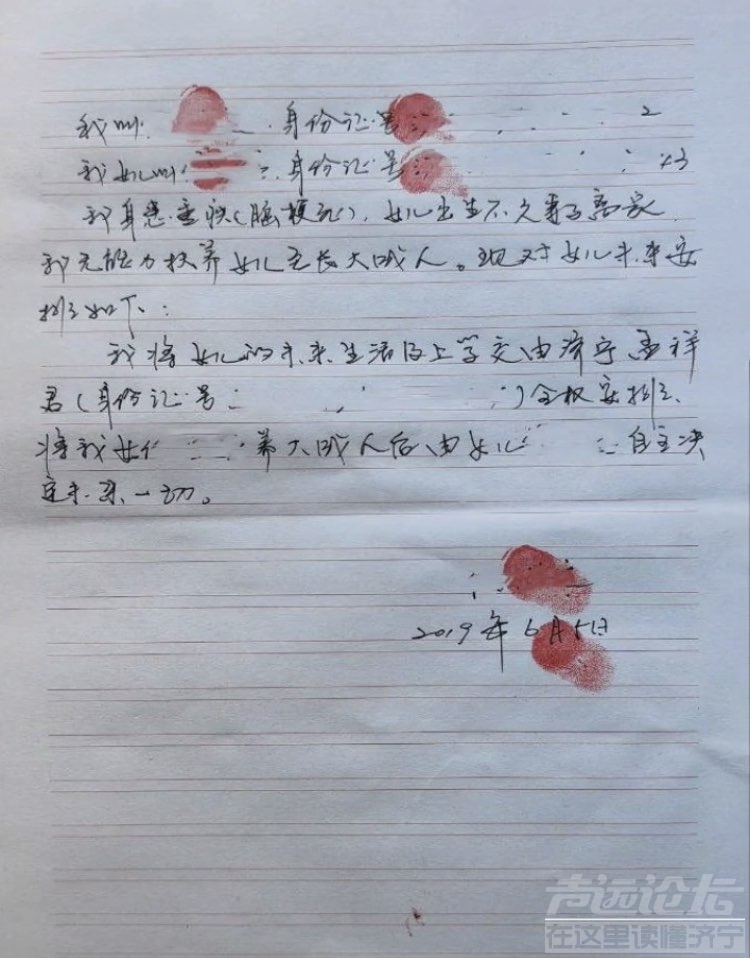 我叫 身份证号 2
我女儿叫 身份证号 43
我身患重病(脑梗死),女儿出生不久妻子离家,
我无能力抚养女儿至长大成人。现对女儿未来安
排如下:
我将女儿的未来生活及上学交由济宁孟祥
君(身份证号 )全权安排、
将我女儿 养大成人后由女儿 自主决
定未来一切。
2019年6月5日
声远论坛
在这里读懂济宁